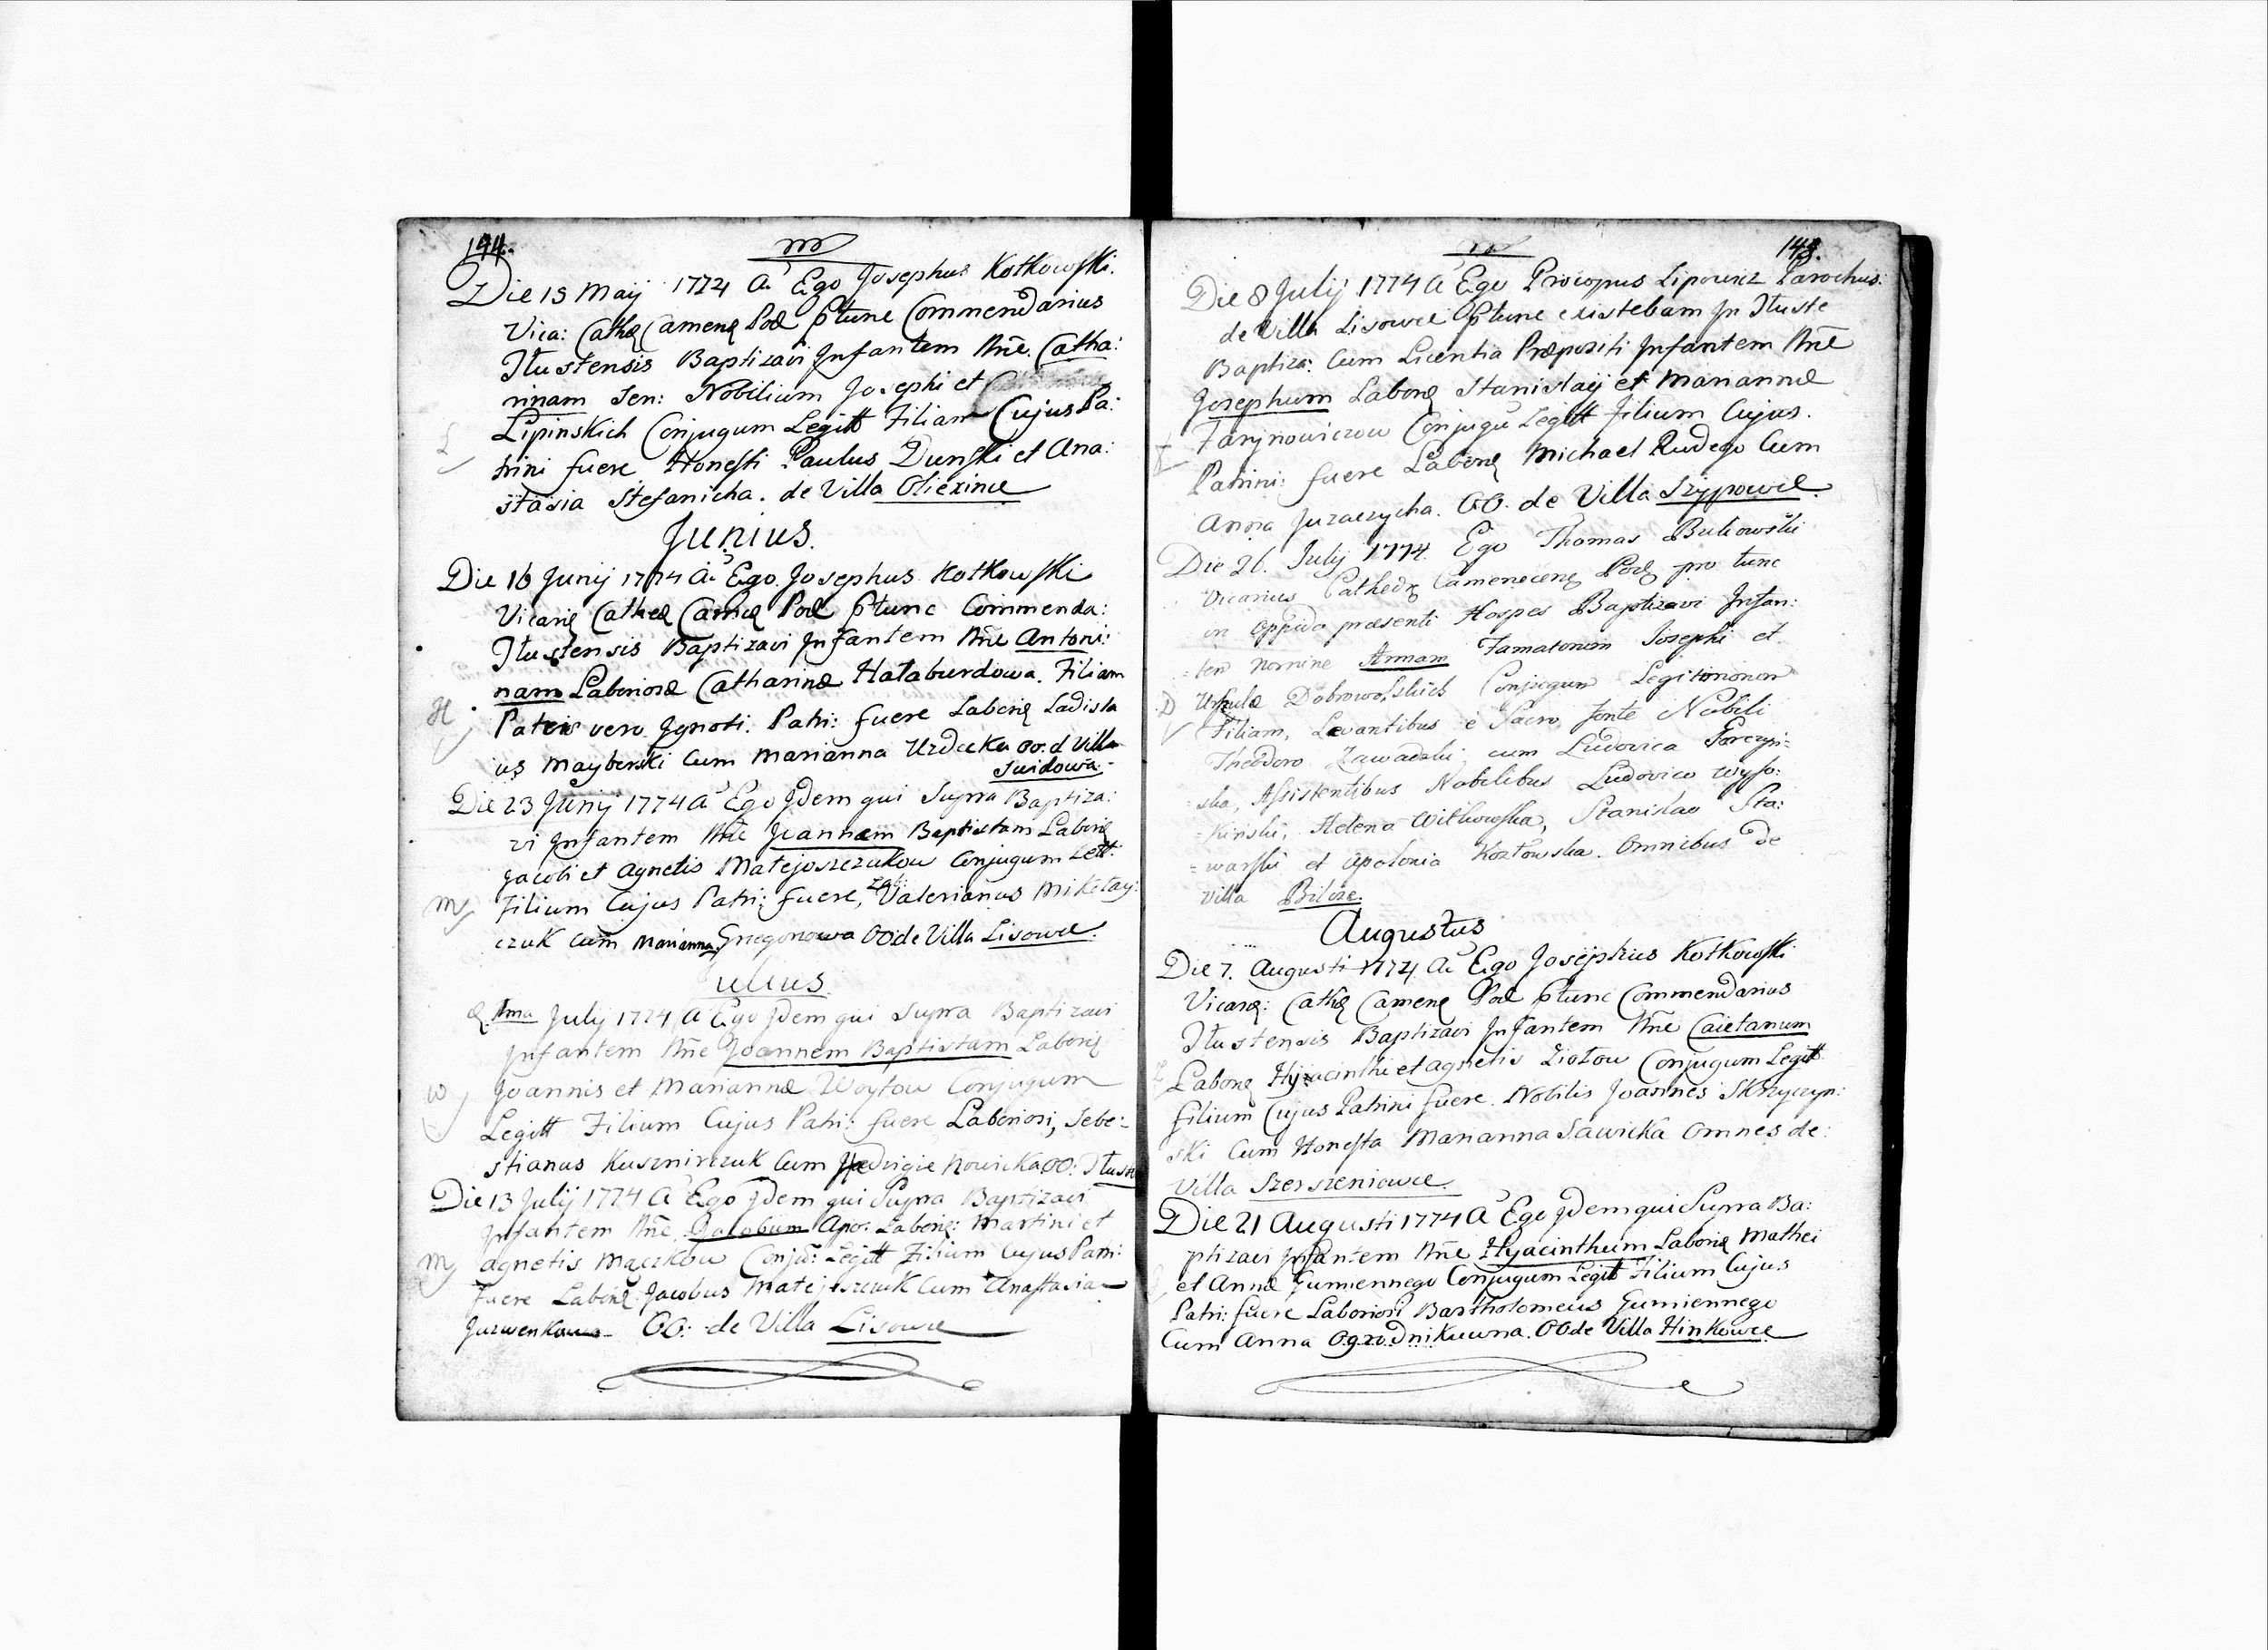 144.
Die 15 Maij 1774 A Ego Josephus Kotkowski.
Vica: Cathę Camenę Pod ptunc Commendarius
Jłustensis Baptizavi Jnfantem Nñe. Catha:
rinam Gen: Nobilium Josephi et
Lipinskich Conjugum Legitt Filiam Cujus Pa:
L
trini fuere Honesti Paulus Dunski et Ana:
stasia Stefanicha. de Villa Oliexince
Junius.
Die 16 Junij 1774 A Ego Josephus Kotkowski
Vicarię Cathed Camę Pod ptunc Commenda:
Jłustensis Baptizavi Jnfantem Nñe Antoni:
nam Laboriosæ Catharinæ Hataburdowa. Filiam
H
Patris vero Jgnoti. Patri: fuere Laborię Ladisla
us Mayberski Cum Marianna Uzdecka OO. d Villa
Swidowa.
Die 23 Junij 1774 A Ego Jdem qui Supra Baptiza:
vi Jnfantem Nñe Joannem Baptistam Laborię
Jacobi et Agnetis Matejoszczukow Conjugum Lett:
M
Filium Cujus Patri: fuere, Valerianus Mikołay:
czuk cum Marianna Gregorowa OO de Villa Lisowce.
Julius.
July 1774 A Ego Jdem qui Supra Baptizavi
Jnfantem Nñe Joannem Baptistam Laborię
W
Joannis et Mariannæ Woytow Conjugum
Legitt Filium Cujus Patri: fuere Laboriosi, Sebe:
stianus Kusznirczuk Cum Hedvigie Nowicka OO:
Die 13 Julij 1774 A Ego Jdem qui Supra Baptizavi
Jnfantem Nñe Jacobum Apo: Laborię: Martini et
M
Agnetis Mączkow Conju: Legitt Filium Cujus Patri:
Fuere Laborię Jacobus Matejoszczuk Cum Anastasia
OO: de Villa Lisowce
Die 8 Julij 1774 A Ego Procopius Lipowicz Parochus:
de Villa Lisowce ptunc existebam Jn Jłuste
Baptiza: Cum Licentia Præpositi Jnfantem Nñe
Josephum Laborę Stanislaij et Mariannæ
Conjugũ Legitt Filium Cujus.
Patrini: fuere Laborię Michael Rudego Cum
Anna Juzaczycha. OO. de Villa Szypowce.
Die 26. Julij 1774. Ego Thomas Bukowski
Vicarius Cathedę Camenecenę Podę pro tunc
in Oppido præsenti Hospes Baptizavi Jnfan:
tem Nomine Annam Famatorum Josephi et
D
Urszulæ Dobrowolskich Conjugum Legitimorum
Filiam, Levantibus è Sacro fonte Nobili
Theodoro Zawadzki cum Ludovica Gorczyń=
=ska, Assistentibus Nobilibus Ludovico Wyso:
=kinski, Helena Witkowska, Stanislao Sta:
=warski et Apolonia Kozłowska. Omnibus de
Villa Bilcze.
Augustus
Die 7. Augusti 1774. A Ego Josephus Kotkowski
Vicarię: Cathę Camenę Pod ptunc Commendarius
Jłustensis Baptizavi Jnfantem Nñe Caietanum
Laborię Hyacinthi et Agnetis Ziołow Conjugum Legitt
Filium Cujus Patrini fuere. Nobilis Joannes Skrzyczyn:
ski Cum Honesta Marianna Sawicka Omnes de:
Villa Szerszeniowce.
Die 21 Augusti 1774 A Ego Jdem qui Supra Ba:
ptizavi Jnfantem Nñe Hyacinthum Laborię Mathei
et Annæ Gumiennego Conjugum Legitt Filium Cujus
Patri: fuere Laboriosi Bartholomeus Gumiennego
Cum Anna Ogrodnikuwna. OO de Villa Hinkowce